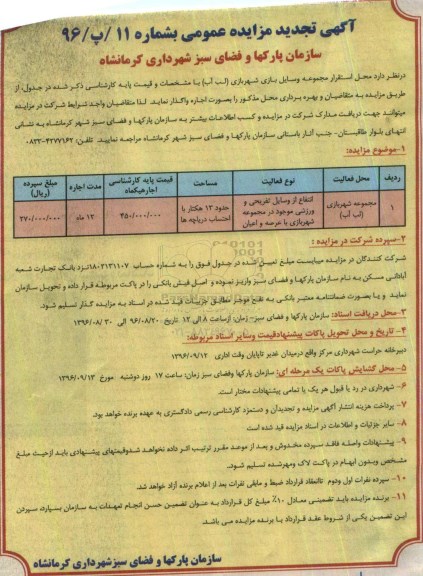 آگهی تجدید مزایده عمومی بشماره ۱۱ /پ/ ۹۶
سازمان پارکها و فضای سبز شهرداری کرمانشاه
درنظر دارد محل استقرار مجموعه وسایل بازی شهربازی (لب آب) با مشخصات و قیمت پایه کارشناسی ذکر شده در جدول، از
طریق مزایده به متقاضیان و بهره برداری محل مذکور را بصورت اجاره واگذار نماید. لذا متقاضیان واجد شرایط شرکت در مزایده
میتوانند جهت دریافت مدارک شرکت در مزایده و کسب اطلاعات بیشتر به سازمان پارکها و فضای سبز شهر کرمانشاه به نشانی
انتهای بلوار طاقبستان- جنب آثار باستانی سازمان پارکها و فضای سبز شهر کرمانشاه مراجعه نمایید. تلفن: ۴۲۷۷۱۶۲-۰۸۳۳
۱-موضوع مزایده:
ردیف محل فعالیت نوع فعالیت مساحت قیمت پایه کارشناسی اجاره‌یکماه مدت اجاره مبلغ سپرده (ریال)
۱ مجموعه شهربازی (لب آب) انتفاع از وسایل تفریحی و ورزشی موجود در مجموعه شهربازی با عرصه و اعیان حدود ۱۳ هکتار با احتساب دریاچه ها ۴۵۰/۰۰۰/۰۰۰ ۱۲ ماه ۲۷۰/۰۰۰/۰۰۰
۲-سپرده شرکت در مزایده :
شرکت کنندگان در مزایده میبایست مبلغ تعیین شده در جدول فوق را به شماره حساب ۱۸۰۲۱۳۱۱۰۷ نزد بانک تجارت شعبه
آبادانی مسکن به نام سازمان پارکها و فضای سبز واریز نموده و اصل فیش بانکی را در پاکت مربوطه قرار داده و تحویل سازمان
نمایند و یا بصورت ضمانتنامه معتبر بانکی به نفع موجر مطابق جزییات قید شده در اسناد به مزایده گذار تسلیم شود.
۳-محل دریافت اسناد: سازمان پارکها و فضای سبز- زمان: ازساعت ۸ الی ۱۲ تاریخ ۹۶/۰۸/۲۰ الی ۱۳۹۶/۰۸/۳۰
۴- تاریخ و محل تحویل پاکات پیشنهادقیمت وسایر اسناد مربوطه:
دبیرخانه حراست شهرداری مرکز واقع درمیدان غدیر تاپایان وقت اداری ۱۳۹۶/۰۹/۱۲
۵-محل گشایش پاکات یک مرحله ای: سازمان پارکها وفضای سبز زمان: ساعت ۱۷ روز دوشنبه مورخ ۱۳۹۶/۰۹/۱۳
۶-شهرداری در رد یا قبول هر یک یا تمامی پیشنهادات مختار است.
۷- پرداخت هزینه انتشار آگهی مزایده و تجدیدآن و دستمزد کارشناسی رسمی دادگستری به عهده برنده خواهد بود.
۸- سایر جزئیات و اطلاعات در اسناد مزایده قید شده است
۹- پیشنهادات واصله فاقد سپرده مخدوش و بعد از موعد مقرر ترتیب اثر داده نخواهد شد وقیمتهای پیشنهادی باید ازحیث مبلغ
مشخص وبدون ابهام در پاکت لاک ومهرشده تسلیم شود.
۱۰- سپرده نفرات اول ودوم تاانعقاد قرارداد ضبط و مابقی نفرات بعد از اعلام برنده آزاد خواهد شد.
۱۱- برنده مزایده باید تضمینی معادل ۱۰٪ مبلغ کل قرارداد به عنوان تضمین حسن انجام تعهدات به سازمان بسپارد، سپردن
این تضمین یکی از شروط عقد قرارداد با برنده مزایده می باشد.
سازمان پارکها و فضای سبزشهرداری کرمانشاه